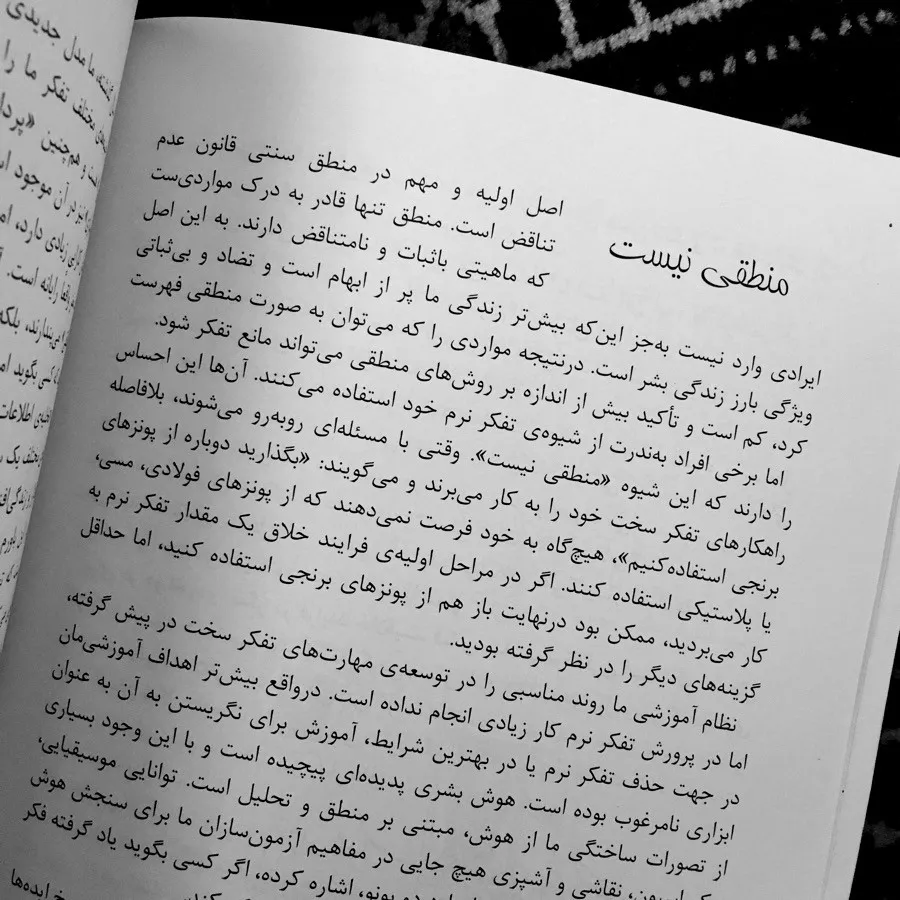 منطقی نیست
اصل اولیه و مهم در منطق سنتی قانون عدم
تناقض است. منطق تنها قادر به درک مواردی‌ست
که ماهیتی باثبات و نامتناقض دارند. به این اصل
ایرادی وارد نیست به‌جز این‌که بیش‌تر زندگی ما پر از ابهام است و تضاد و بی‌ثباتی
ویژگی بارز زندگی بشر است. درنتیجه مواردی را که می‌توان به صورت منطقی فهرست
کرد، کم است و تأکید بیش از اندازه بر روش‌های منطقی می‌تواند مانع تفکر شود.
اما برخی افراد به‌ندرت از شیوه‌ی تفکر نرم خود استفاده می‌کنند. آن‌ها این احساس
را دارند که این شیوه «منطقی نیست». وقتی با مسئله‌ای روبه‌رو می‌شوند، بلافاصله
راهکارهای تفکر سخت خود را به کار می‌برند و می‌گویند: «بگذارید دوباره از پونزهای
برنجی استفاده‌کنیم»، هیچ‌گاه به خود فرصت نمی‌دهند که از پونزهای فولادی، مسی،
یا پلاستیکی استفاده کنند. اگر در مراحل اولیه‌ی فرایند خلاق یک مقدار تفکر نرم به
کار می‌بردید، ممکن بود درنهایت باز هم از پونزهای برنجی استفاده کنید، اما حداقل
گزینه‌های دیگر را در نظر گرفته بودید.
نظام آموزشی ما روند مناسبی را در توسعه‌ی مهارت‌های تفکر سخت در پیش گرفته،
اما در پرورش تفکر نرم کار زیادی انجام نداده است. درواقع بیش‌تر اهداف آموزشی‌مان
در جهت حذف تفکر نرم یا در بهترین شرایط، آموزش برای نگریستن به آن به عنوان
ابزاری نامرغوب بوده است. هوش بشری پدیده‌ای پیچیده است و با این وجود بسیاری
از تصورات ساختگی ما از هوش، مبتنی بر منطق و تحلیل است. توانایی موسیقیایی،
نقاشی و آشپزی هیچ جایی در مفاهیم آزمون‌سازان ما برای سنجش هوش
دو بونو، اشاره کرده، اگر کسی بگوید یاد گرفته فکر
ایده‌ها